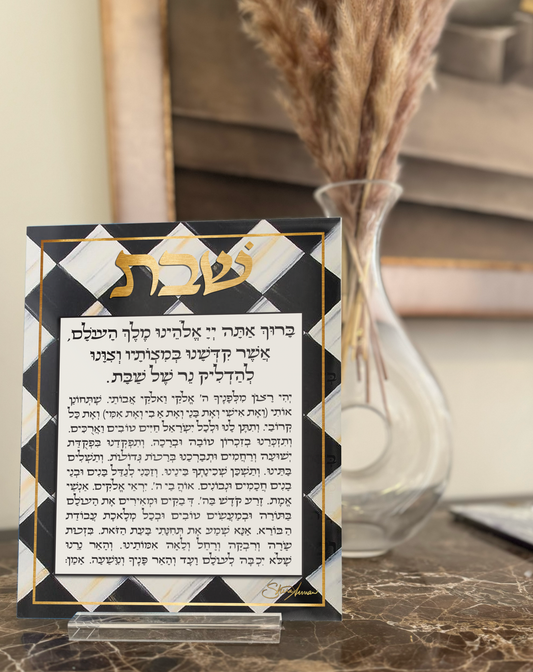 שבת
בָּרוּךְ אַתָּה יְיָ אֱלֹהֵינוּ מֶלֶךְ הָעוֹלָם,
אֲשֶׁר קִדְּשָׁנוּ בְּמִצְוֹתָיו וְצִוָּנוּ
לְהַדְלִיק נֵר שֶׁל שַׁבָּת.
יְהִי רָצוֹן מִלְּפָנֶיךָ ה' אֱלֹקַי וֵאלֹקֵי אֲבוֹתַי, שֶׁתְּחוֹנֵן
אוֹתִי (וְאֶת אִישִׁי וְאֶת בָּנַי וְאֶת אָבִי וְאֶת אִמִּי) וְאֶת כָּל
קְרוֹבַי. וְתִתֵּן לָנוּ וּלְכָל יִשְׂרָאֵל חַיִּים טוֹבִים וַאֲרֻכִּים.
וְתִזְכְּרֵנוּ בְּזִכְרוֹן טוֹבָה וּבְרָכָה. וְתִפְקְדֵנוּ בִּפְקֻדַּת
יְשׁוּעָה וְרַחֲמִים וּתְבָרְכֵנוּ בְּרָכוֹת גְּדוֹלוֹת. וְתַשְׁלִים
בָּתֵּינוּ. וְתַשְׁכֵּן שְׁכִינָתְךָ בֵּינֵינוּ. וְזַכֵּנִי לְגַדֵּל בָּנִים וּבְנֵי
בָנִים חֲכָמִים וּנְבוֹנִים. אוֹהֲבֵי ה'. יִרְאֵי אֱלֹקִים. אַנְשֵׁי
אֱמֶת. זֶרַע קֹדֶשׁ בַּה'. דְּבֵקִים וּמְאִירִים אֶת הָעוֹלָם
בַּתּוֹרָה וּבְמַעֲשִׂים טוֹבִים וּבְכָל מְלֶאכֶת עֲבוֹדַת
הַבּוֹרֵא. אָנָּא שְׁמַע אֶת תְּחִנָּתִי בָּעֵת הַזֹּאת. בִּזְכוּת
שָׂרָה וְרִבְקָה וְרָחֵל וְלֵאָה אִמּוֹתֵינוּ. וְהָאֵר נֵרֵנוּ
שֶׁלֹּא יִכְבֶּה לְעוֹלָם וָעֶד וְהָאֵר פָּנֶיךָ וְנִוָּשֵׁעָה. אָמֵן: